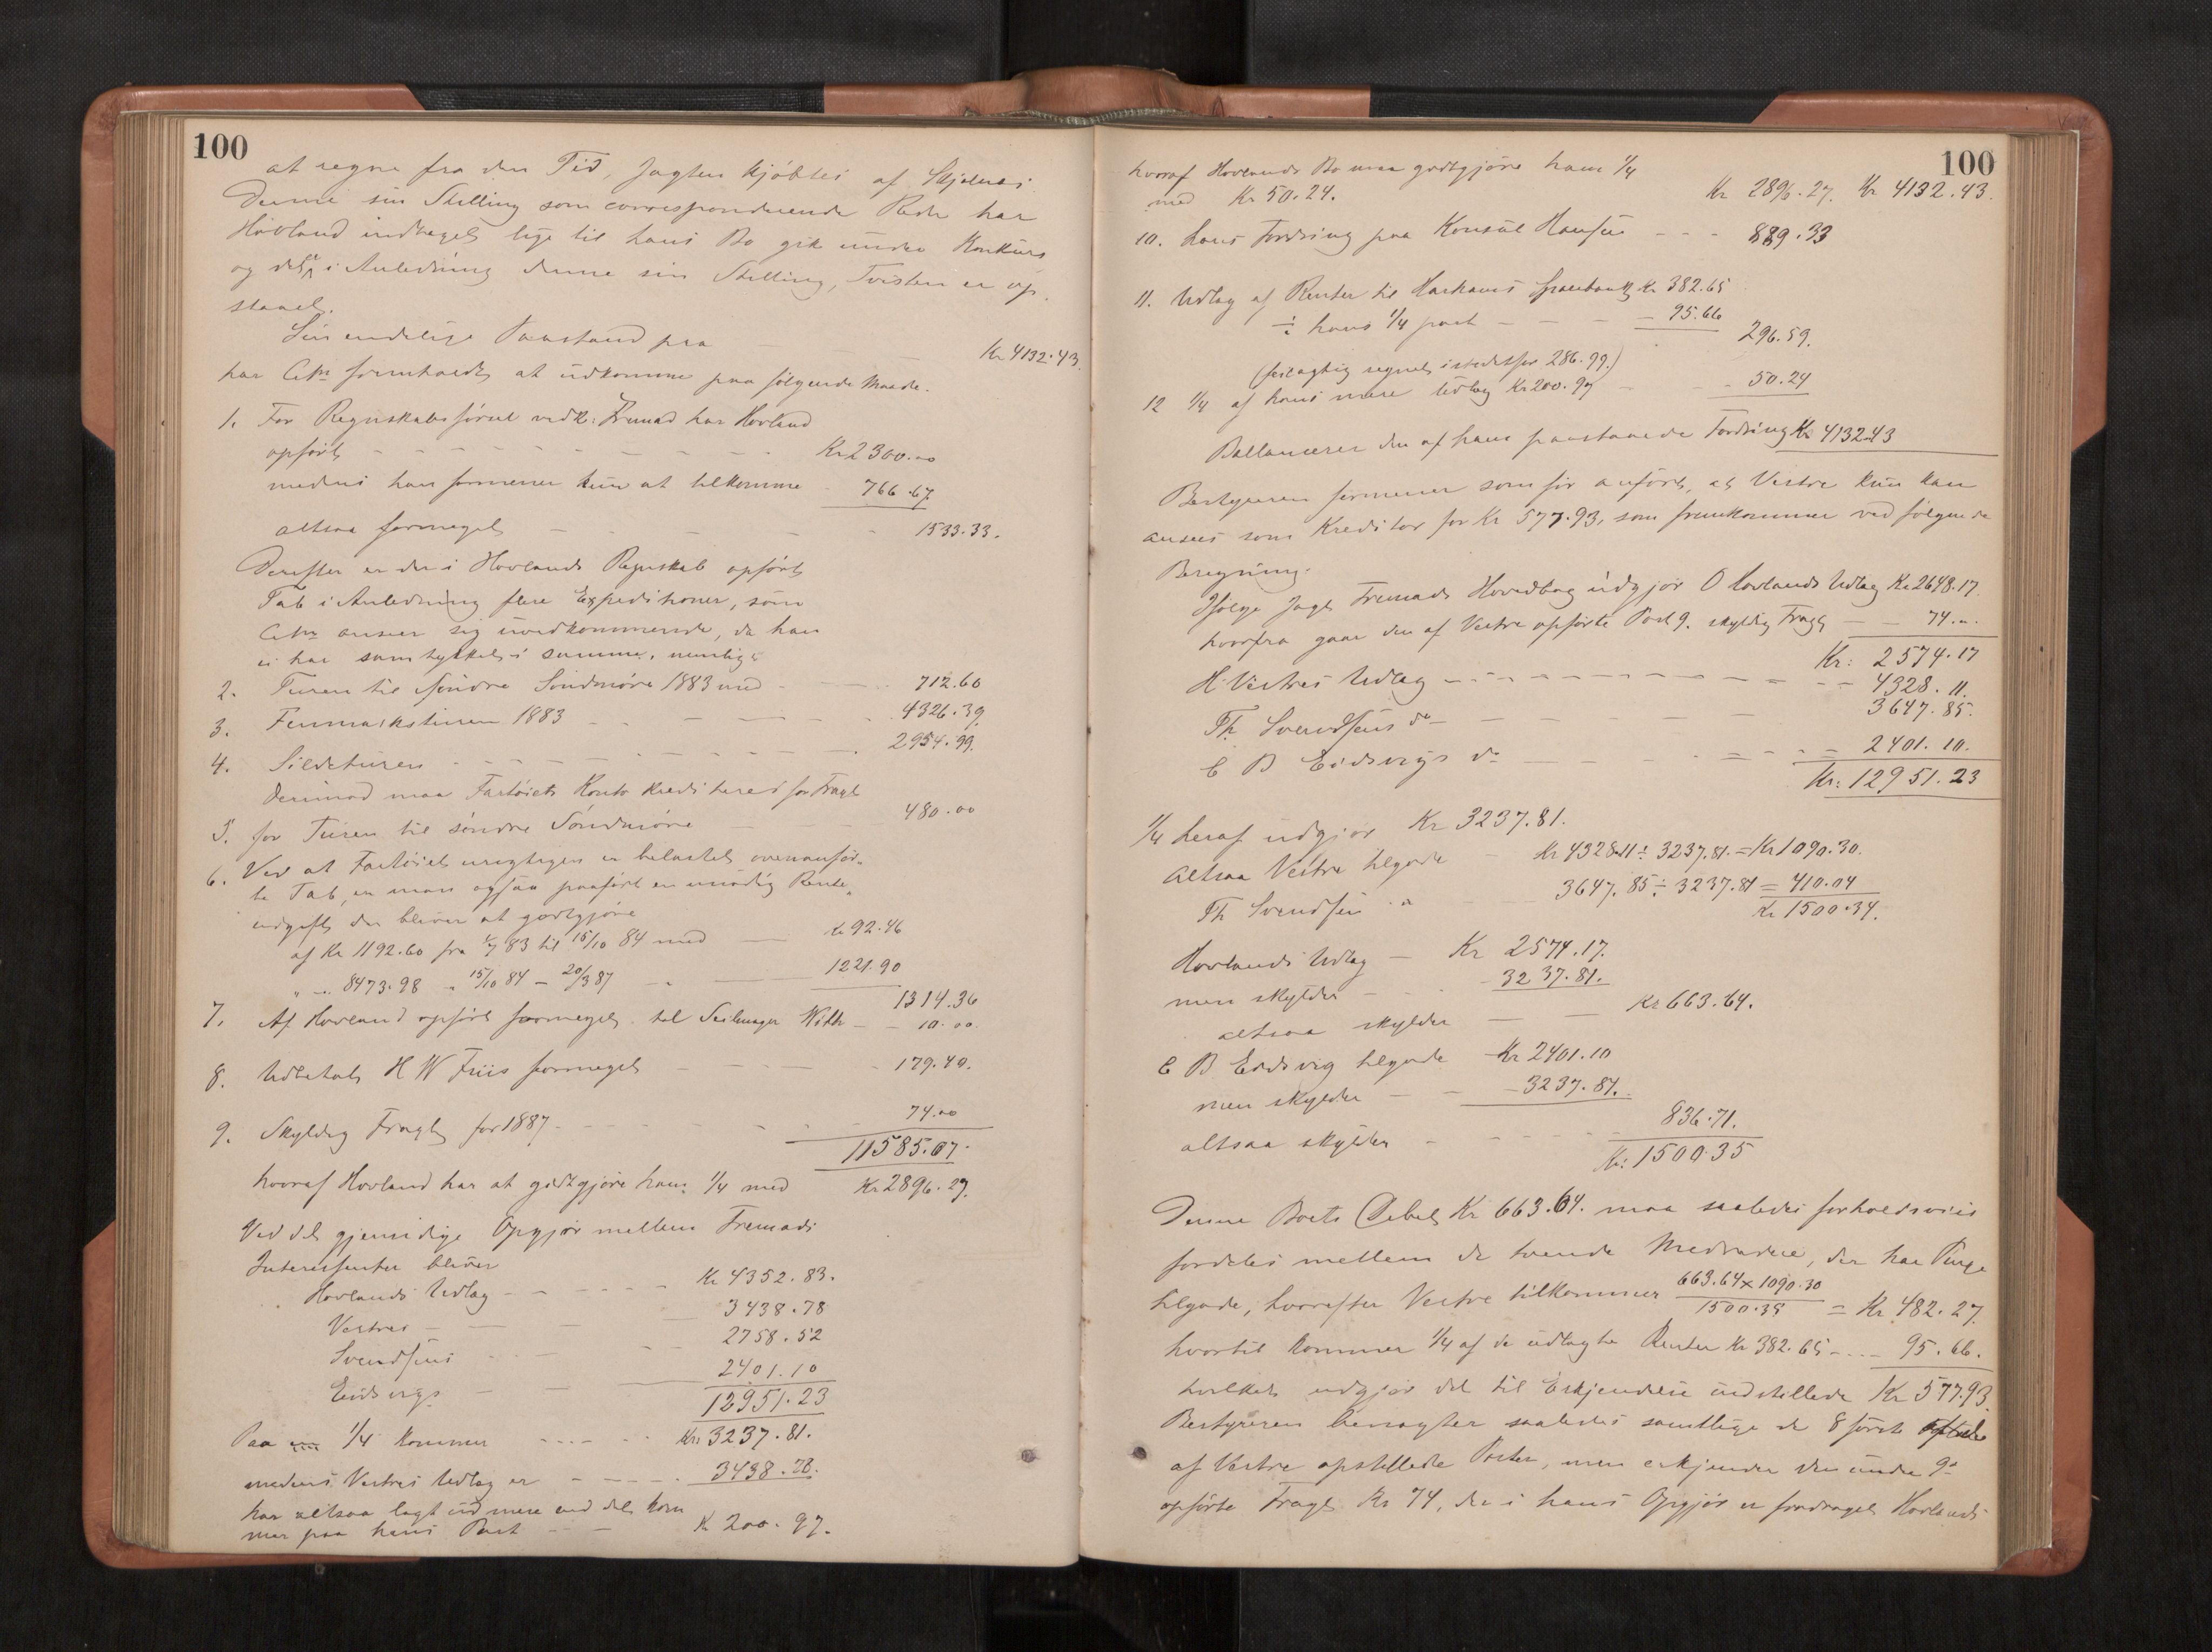 100
at regne fra den Tid, Jagten kjøbtes af Skjelnes.
Denne sin Stilling som corresponderende Reder har
Hovland indtaget lige til hans Bo gik under Konkurs
og det er i Anledning denne sin Stilling, Tvisten er op
staaet.
Sin endelige Paastand paa — — — Kr 4132.43.
har Citn formholdt at udkomme paa følgende Maade.
1. For Regnskabsførsel vedk: Fremad har Hovland
opført - - - - - - - - Kr 2300.00
medens han formener kun at tilkomme 766.67.
altsaa formeget - - - - 1533.33.
Derefter er der i Hovlands Regnskab opført
Tab i Anledning flere Expeditioner, som
Citn anseer sig uvedkommende, da han
ei har samtykket i samme, nemlig:
2. Turen til Søndre Søndmøre 1883 med - - 712.60
3. Finmarksturen 1883 - - - - 4326.39.
4. Sildeturen - - - - - - 2954.99.
Derimod maa Fartøiets Konto krediteres for Fragt
5. for Turen til søndre Søndmøre — 480.00
6. Ved at Fartøiet urigtigen er belastet ovenanfør-
te Tab, er man ogsaa paaført en unødig Rente-
udgift der bliver at godtgjøre
af Kr 1192.60 fra 1/7 83 til 15/10 84 med — Kr 92.46
" - 8473.98 " 15/10 84 — 20/3 87 — " — 1221.90
1314.36
7. Af Hovland opført formeget til Seilmager With — - 10.00.
8. Udbetalt H W Friis formeget - - - - 179.40.
9. Skyldig Fragt for 1887 - - - - - 74.00
11585.07.
hvoraf Hovland har at godtgjøre ham 1/4 med Kr 2896.27.
Ved det gjensidige Opgjør mellem Fremads
Interessenter bliver
Hovlands Udlæg - - - - - Kr 4352.83.
Vestres — — — — 3438.78
Svendsens - - - - 2758.52
Eidsvigs — — — 2401.10
12951.23
Paa 1/4 kommer - - - - Kr: 3237.81.
medens Vestres Udlæg er - - - - 3438.78.
har altsaa lagt ud mere end det kom
mer paa hans Part - - — Kr 200.97.
100
hvoraf Hovlands Bo maa godtgjøre ham 1/4
med Kr 50.24. Kr 2896.27. Kr 4132.43.
10. hans Fordring paa Konsul Hansen - - - 889.33
11. Udlæg af Renter til Harhams Sparebank Kr 382.65
÷ hans 1/4 part - - - - 95.66
296.59.
(feilagtig regnet istedetfor 286.99.)
12 1/4 af hans mere Udlæg Kr 200.97 - - - 50.24
Ballancerer den af ham paastaaede Fordring Kr 4132.43
Bestyreren formener som før anført, at Vestre kun kan
ansees som Kreditor for Kr 577.93, som fremkommer ved følgende
Beregning.
Ifølge Jagt Fremads Hovedbog udgjør O Hovlands Udlæg Kr 2648.17.
hvorfra gaar den af Vestre opførte Post 9. skyldig Fragt — — 74.„
Kr: 2574.17
H. Vestres Udlæg - - - - - - - - 4328.11.
Th. Svendsens do — — — — — 3647.85.
C B Eidsvigs do — — - - - - 2401.10.
Kr: 12951.23
1/4 heraf udgjør Kr 3237.81.
altsaa Vestre tilgode - Kr 4328.11 ÷ 3237.81. = Kr 1090.30.
Th Svendsen " - - 3647.85 ÷ 3237.81 = 410.04
Kr 1500.34.
Hovlands Udlæg — Kr 2574.17.
men skylder - - - 3237.81.
altsaa skylder — — Kr 663.64.
C B Eidsvig tilgode Kr 2401.10
men skylder - - - 3237.81.
altsaa skylder - - - - - 836.71.
Kr: 1500.35
Denne Boets Debet Kr 663.64. maa saaledes forholdsvis
fordeles mellem de tvende Medredere, der har Penge
tilgode, hvorefter Vestre tilkommer 663.64 x 1090.30 / 1500.35 = Kr 482.27.
hvortil kommer 1/4 af de udlagte Renter Kr 382.65 - - - 95.66.
hvilket udgjør det til Erkjendelse indstillede Kr 577.93.
Bestyreren benægter saaledes samtlige de 8 første
af Vestre opstillede Poster, men erkjender den under 9de
opførte Fragt Kr 74, der i hans Opgjør er fradraget Hovlands